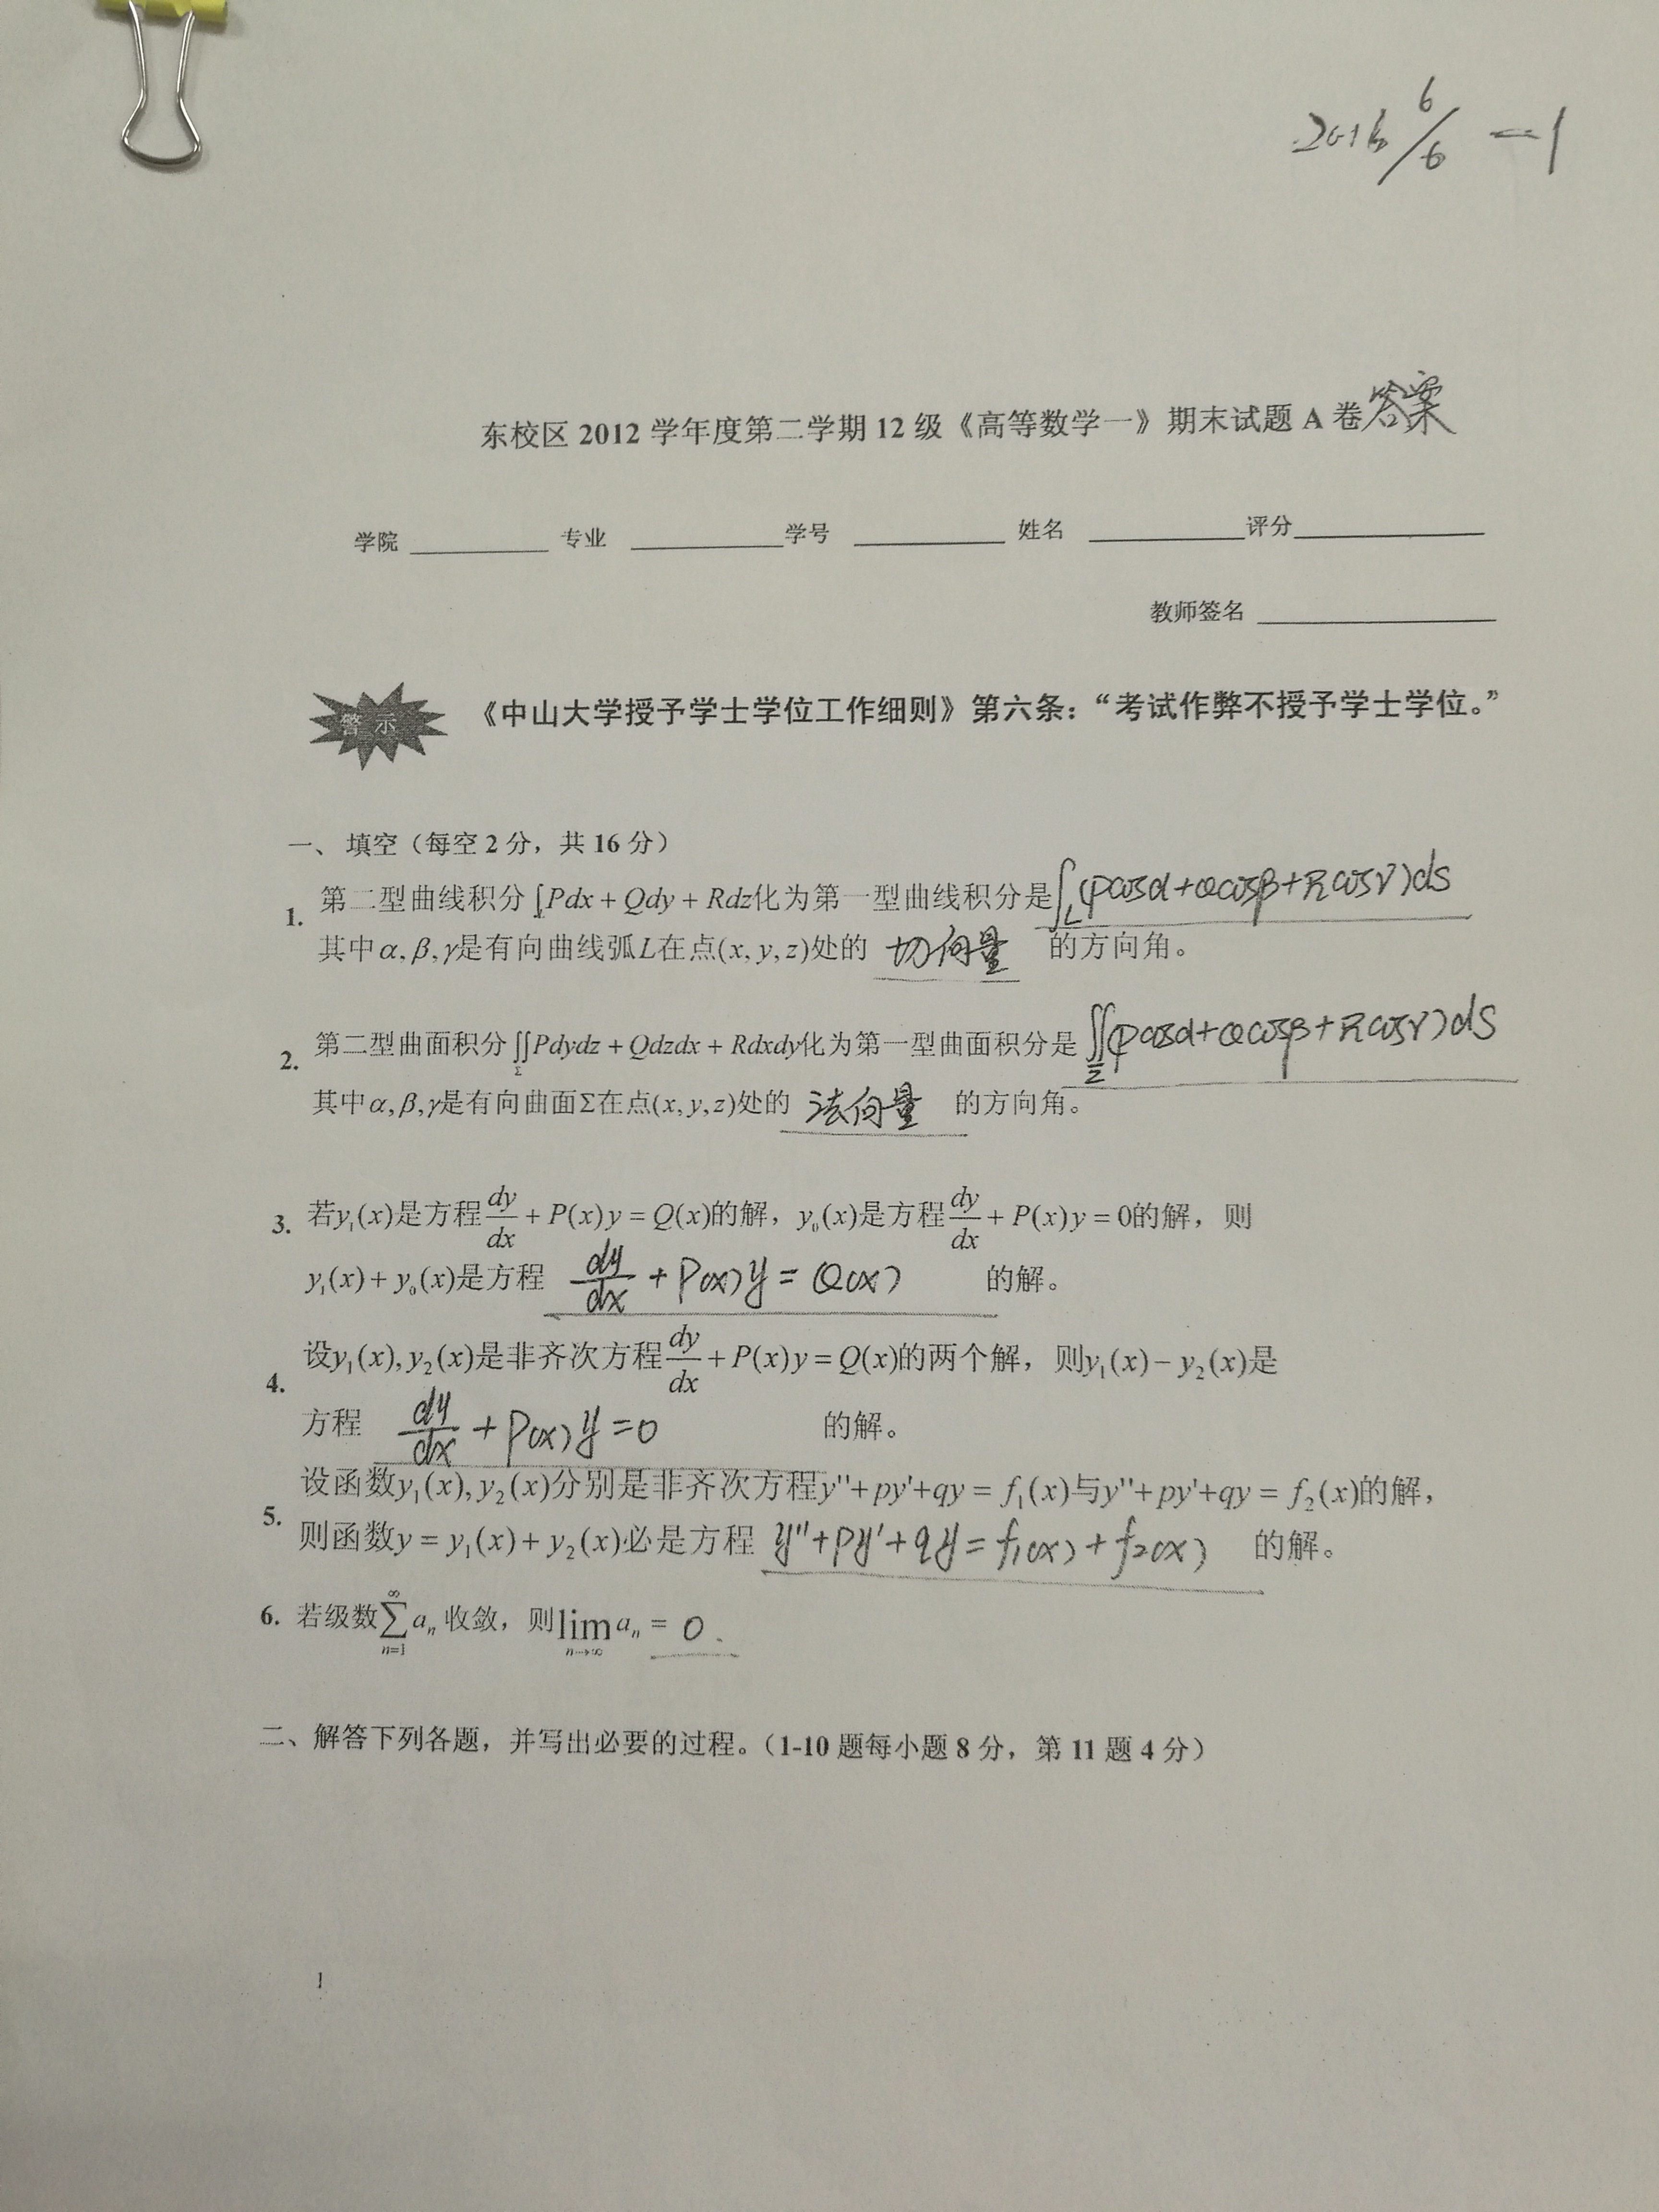 2016 6/6 —1
东校区 2012 学年度第二学期 12 级《高等数学一》期末试题 A 卷答案
学院 专业 学号 姓名 评分
教师签名
警示 《中山大学授予学士学位工作细则》第六条：“考试作弊不授予学士学位。”
一、填空（每空 2 分，共 16 分）
1. 第二型曲线积分∫_L Pdx + Qdy + Rdz化为第一型曲线积分是 ∫_L (Pcosα+Qcosβ+Rcosγ)ds
其中α, β, γ是有向曲线弧L在点(x, y, z)处的 切向量 的方向角。
2. 第二型曲面积分∬_Σ Pdydz + Qdzdx + Rdxdy化为第一型曲面积分是 ∬_Σ (Pcosα+Qcosβ+Rcosγ)dS
其中α, β, γ是有向曲面Σ在点(x, y, z)处的 法向量 的方向角。
3. 若y₁(x)是方程dy/dx + P(x)y = Q(x)的解，y₀(x)是方程dy/dx + P(x)y = 0的解，则
y₁(x) + y₀(x)是方程 dy/dx + P(x)y = Q(x) 的解。
4. 设y₁(x), y₂(x)是非齐次方程dy/dx + P(x)y = Q(x)的两个解，则y₁(x) − y₂(x)是
方程 dy/dx + P(x)y = 0 的解。
5. 设函数y₁(x), y₂(x)分别是非齐次方程y''+ py'+qy = f₁(x)与y''+ py'+qy = f₂(x)的解，
则函数y = y₁(x) + y₂(x)必是方程 y''+py'+qy = f₁(x)+f₂(x) 的解。
6. 若级数∑_{n=1}^∞ aₙ 收敛，则lim_{n→∞} aₙ = 0.
二、解答下列各题，并写出必要的过程。（1-10 题每小题 8 分，第 11 题 4 分）
1